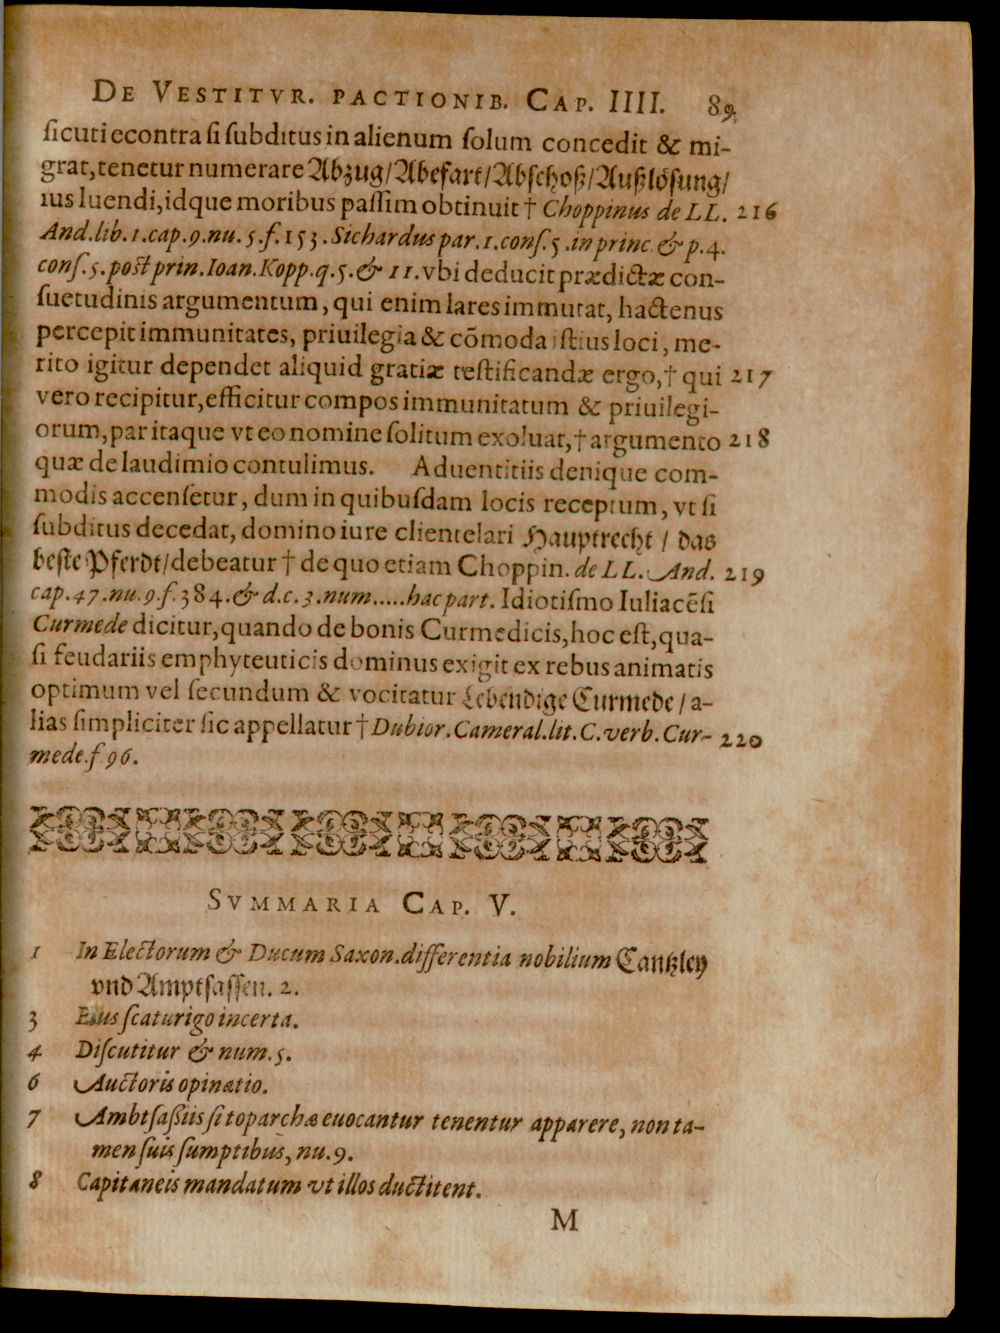 DE VESTITVR. PACTIONIB. CAP. IIII. 89.
ſicuti econtra ſi ſubditus in alienum ſolum concedit & mi-
grat, tenetur numerare Abzug/Abefart/Abſchoß/Außlöſung/
ius luendi, idque moribus paſſim obtinuit † Choppinus de LL. 216
And. lib. 1. cap. 9. nu. 5. f. 153. Sichardus par. 1. conſ. 5. in princ. & p. 4.
conſ. 5. poſt prin. Ioan. Kopp. q. 5. & 11. vbi deducit prædictæ con-
ſuetudinis argumentum, qui enim lares immutat, hactenus
percepit immunitates, priuilegia & cōmoda iſtius loci, me-
rito igitur dependet aliquid gratiæ teſtificandæ ergo, † qui 217
vero recipitur, efficitur compos immunitatum & priuilegi-
orum, par itaque vt eo nomine ſolitum exoluat, † argumento 218
quæ de laudimio contulimus. Aduentitiis denique com-
modis accenſetur, dum in quibuſdam locis receptum, vt ſi
ſubditus decedat, domino iure clientelari Hauptrecht / das
beſte Pferdt/ debeatur † de quo etiam Choppin. de LL. And. 219
cap. 47. nu. 9. f. 384. & d. c. 3. num..... hac part. Idiotiſmo Iuliacēſi
Curmede dicitur, quando de bonis Curmedicis, hoc eſt, qua-
ſi feudariis emphyteuticis dominus exigit ex rebus animatis
optimum vel ſecundum & vocitatur Lebendige Curmede / a-
lias ſimpliciter ſic appellatur † Dubior. Cameral. lit. C. verb. Cur- 220
mede. f 96.
SVMMARIA CAP. V.
1 In Electorum & Ducum Saxon. differentia nobilium Cantzley
vnd Amptſaſſen. 2.
3 Eius ſcaturigo incerta.
4 Diſcutitur & num. 5.
6 Auctoris opinatio.
7 Ambtſaßiis ſi toparchæ euocantur tenentur apparere, non ta-
men ſuis ſumptibus, nu. 9.
8 Capitaneis mandatum vt illos ductitent.
M